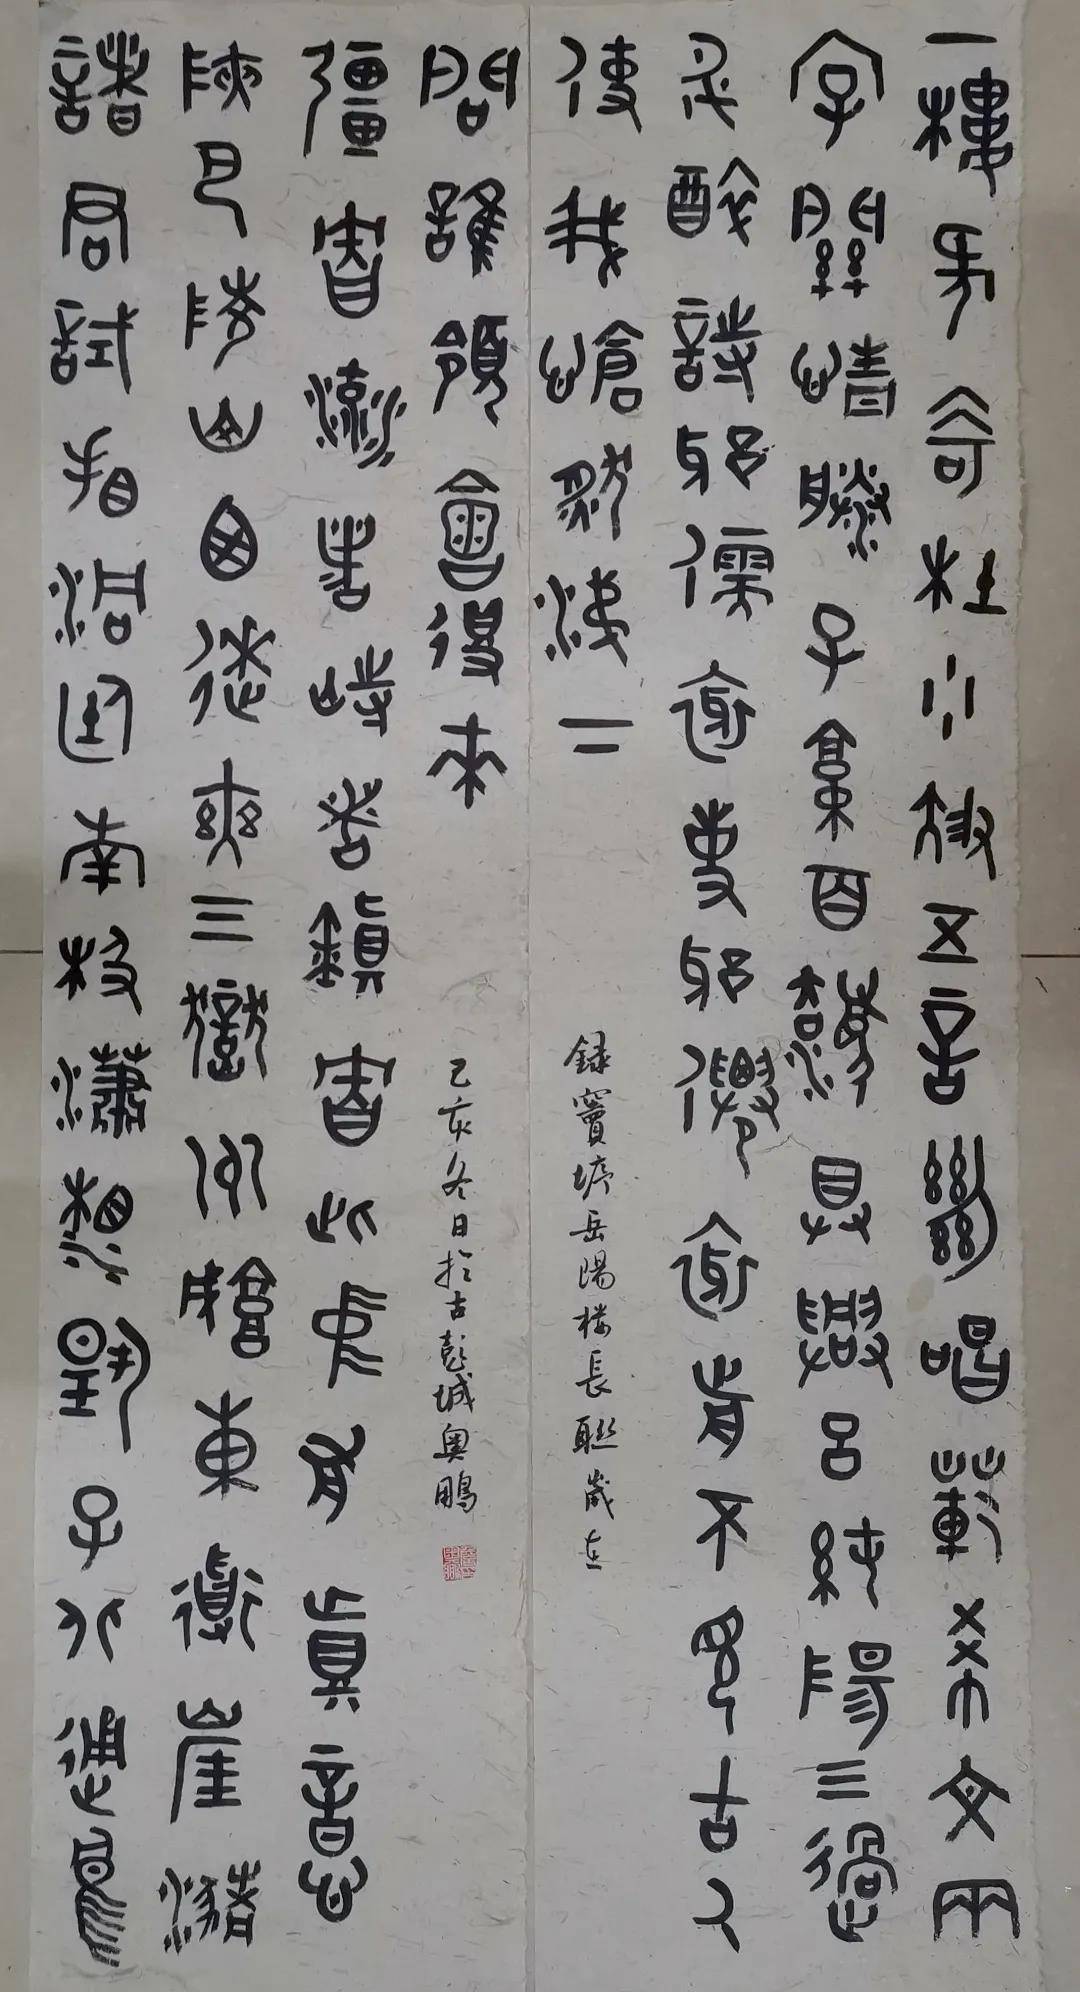 一樓何奇杜少陵五言絕唱范希文兩
字關情滕子京百廢具興呂純陽三過
必醉詩耶儒耶吏耶仙耶前不見古人
使我愴然涕下
錄竇垿岳陽楼長聯歲在
諸君試看洞庭南極瀟湘揚子北通巫
陝巴陵山西來爽气嶽州城東道崖瀦
彊者流者峙者鎮者此中有真意
問誰領會得來
己亥冬日於古彭城奥鵬